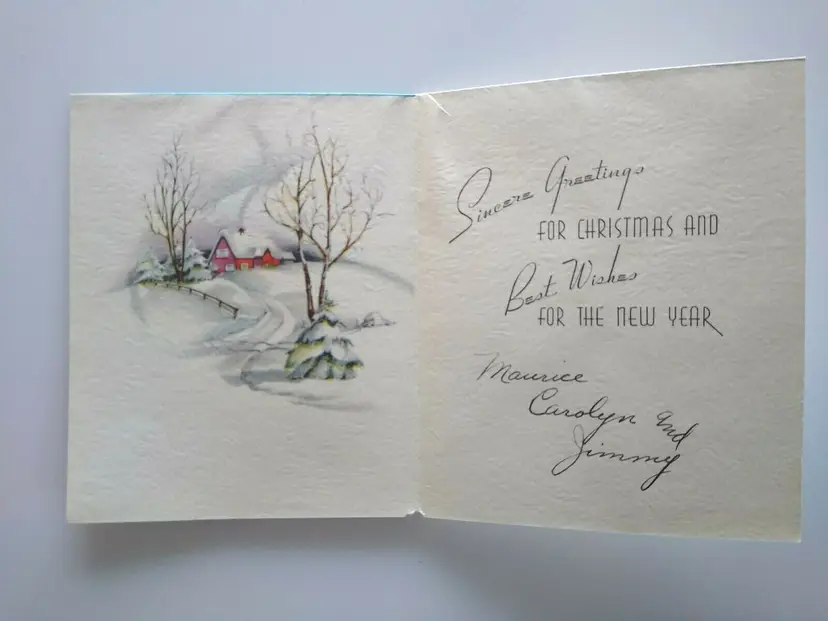 Sincere Greetings
FOR CHRISTMAS AND
Best Wishes
FOR THE NEW YEAR
Maurice
Carolyn and
Jimmy